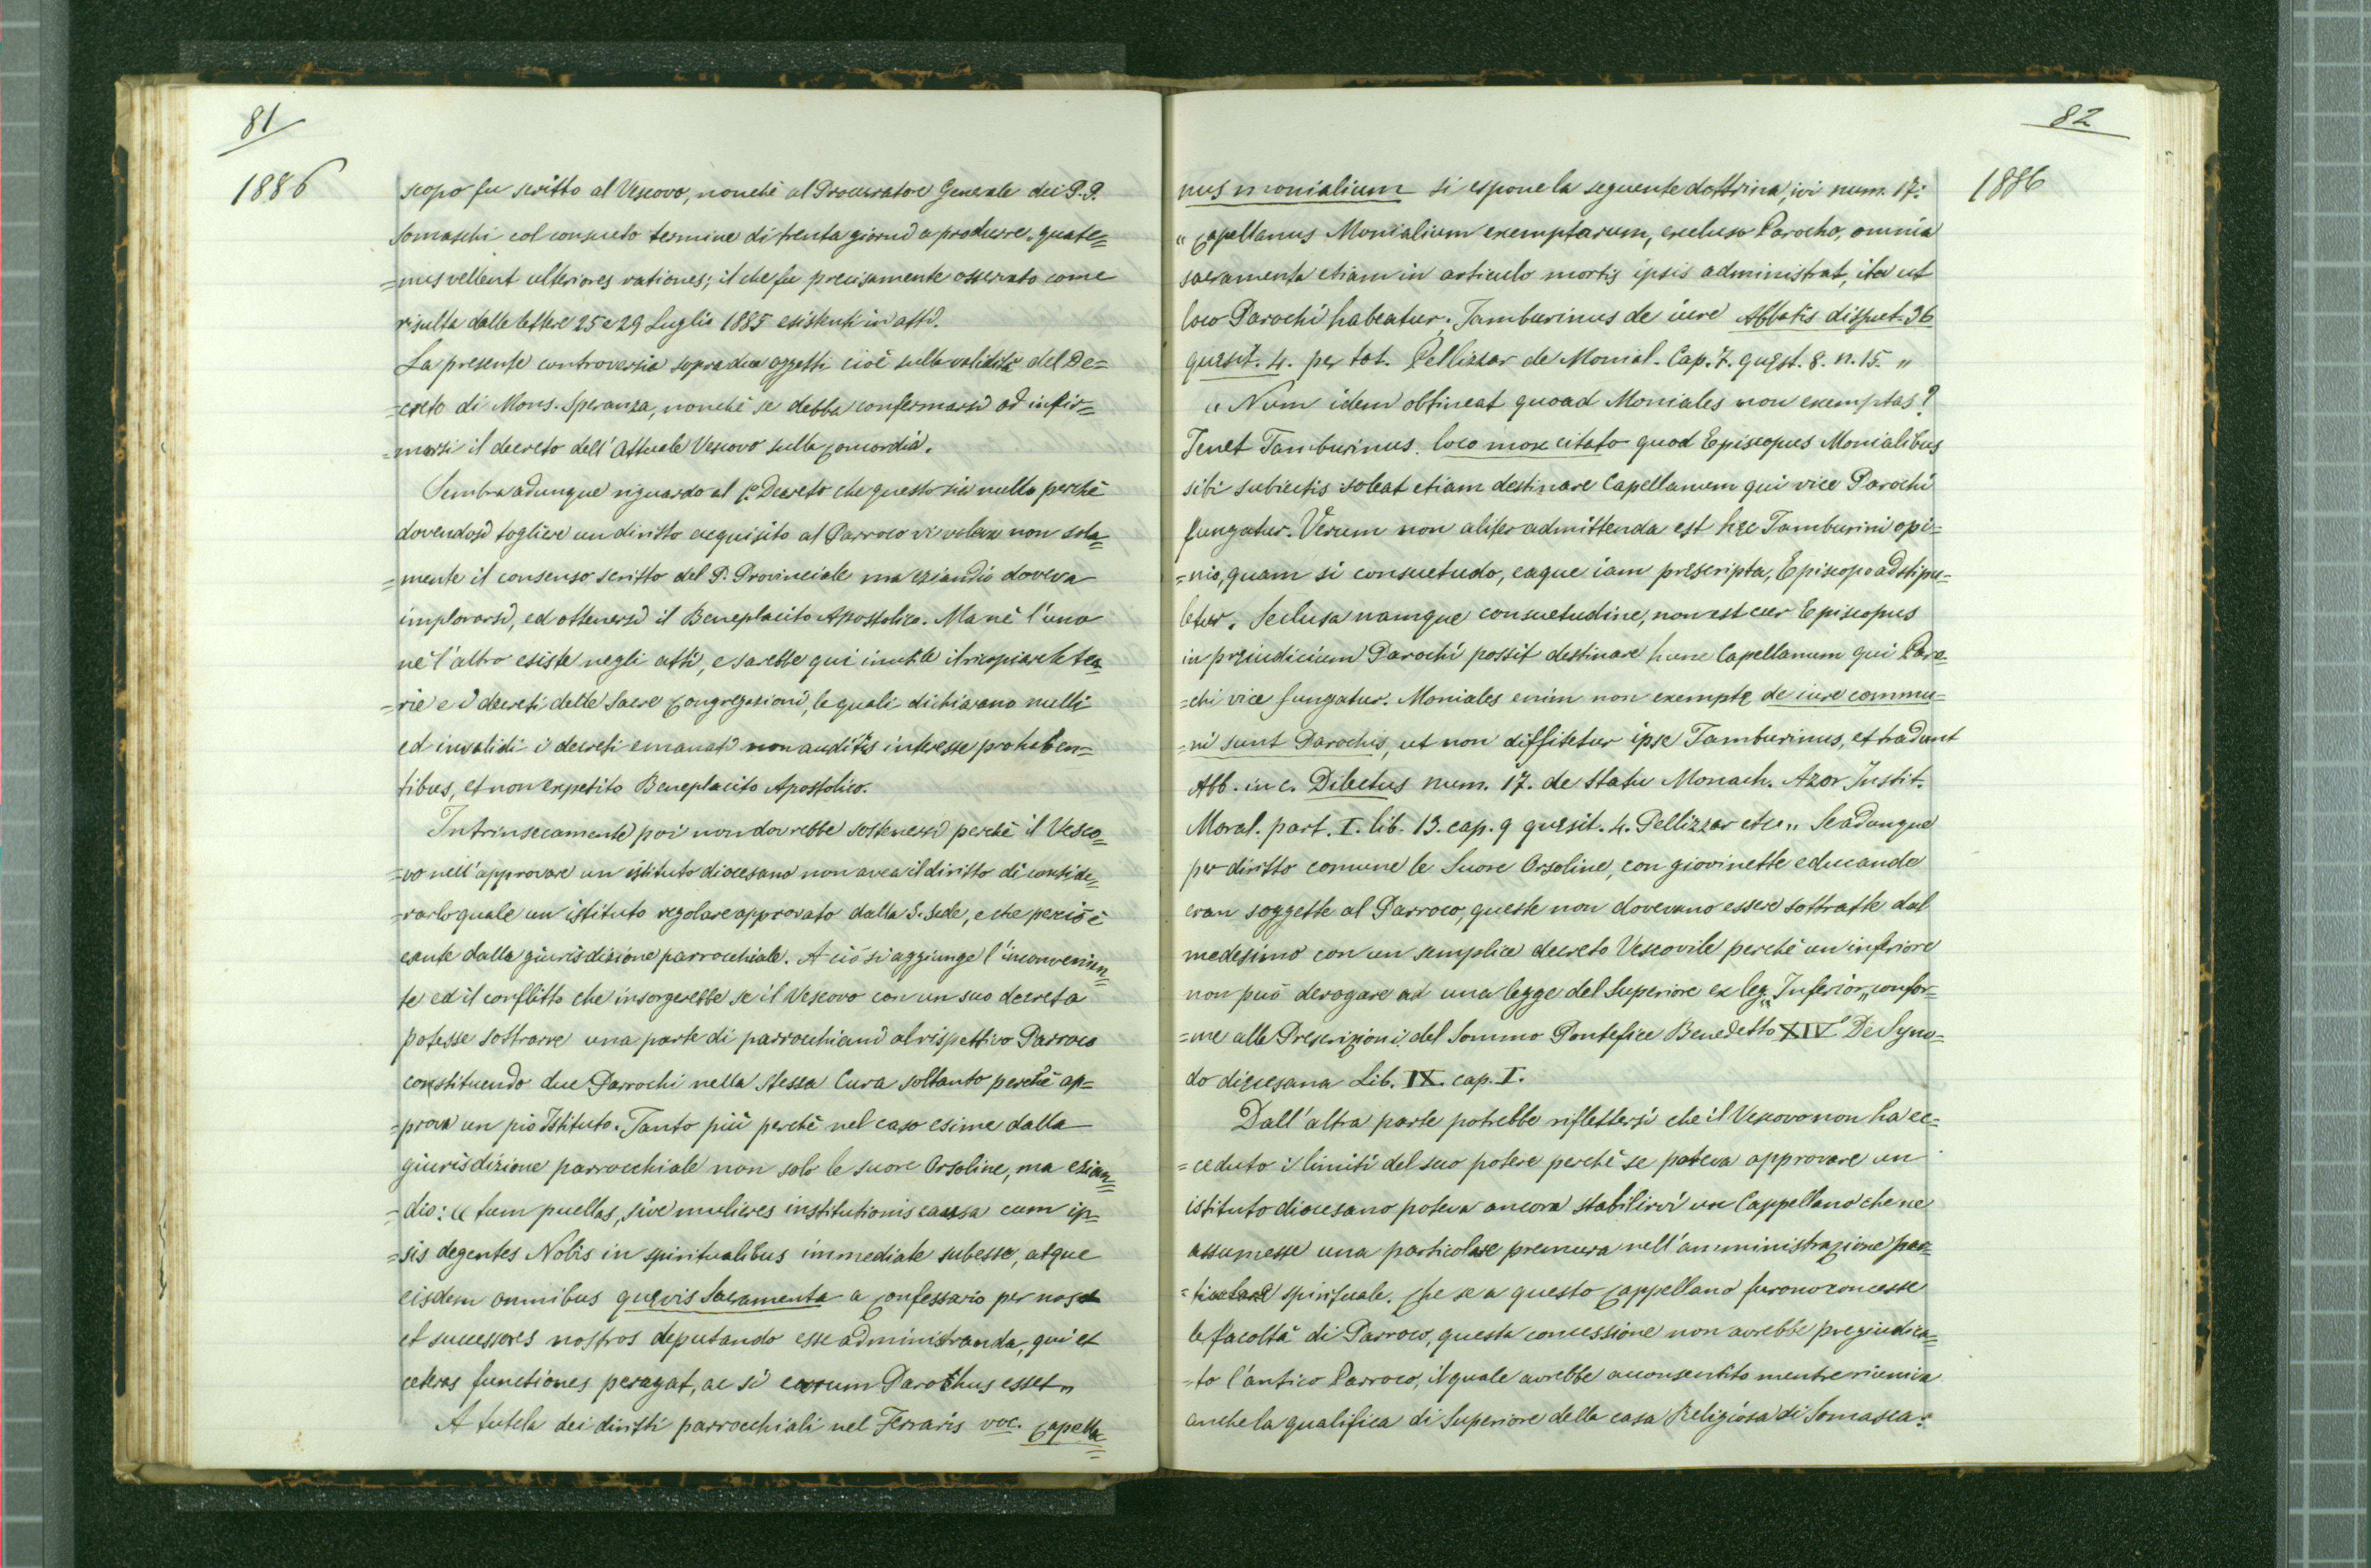 81
1886
scopo fu scritto al Vescovo, nonchè al Procuratore Generale dei P.P.
Somaschi col consueto termine di trenta giorni a produrre, quate=
=nus vellent ulteriores rationes; il che fu precisamente osservato come
risulta dalle lettere 25 e 29 Luglio 1885 esistenti in atti.
La presente controversia sopra due oggetti cioè sulla validità del De=
=creto di Mons. Speranza, nonchè se debba confermarsi od infir=
=marsi il decreto dell'Attuale Vescovo sulla concordia.
Sembra adunque riguardo al 1.o Decreto che questo sia nullo perchè
dovendosi togliere un diritto acquisito al Parroco vi volea non sola=
=mente il consenso scritto del P. Provinciale ma eziandio doveva
implorarsi, ed ottenersi il Beneplacito Apostolico. Ma nè l'uno
nè l'altro esiste negli atti, e sarebbe qui inutile il ricopiare le teo=
=rie e i decreti delle Sacre Congregazioni, le quali dichiarano nulli
ed invalidi i decreti emanati non auditis interesse prohaben=
tibus, et non expetito Beneplacito Apostolico.
Intrinsecamente poi non dovrebbe sostenersi perchè il Vesco=
=vo nell'approvare un istituto diocesano non avea il diritto di conside=
=rarlo quale un istituto regolare approvato dalla S. Sede, e che perciò è
esente dalla giurisdizione parrocchiale. A ciò si aggiunge l'inconvenien=
te ed il conflitto che insorgerebbe se il Vescovo con un suo decreto
potesse sottrarre una parte di parrocchiani al rispettivo Parroco
constituendo due Parrochi nella stessa Cura soltanto perchè ap=
=prova un pio Istituto. Tanto più perchè nel caso esime dalla
giurisdizione parrocchiale non solo le suore Orsoline, ma ezian=
=dio: " tum puellas, sive mulieres institutionis causa cum ip=
=sis degentes Nobis in spiritualibus immediate subesse, atque
eisdem omnibus quęvis Sacramenta a Confessario per nos
et successores nostros deputando esse administranda, qui et
ceteras functiones peragat, ac si earum Parochus esset "
A tutela dei diritti parrocchiali nel Ferraris voc. Capella=
82
1886
nus monialium si espone la seguente dottrina, ivi num. 17:
" Capellanus Monialium exemptarum, excluso Parocho, omnia
sacramenta etiam in articulo mortis ipsis administrat, ita ut
loco Parochi habeatur. Tamburinus de iure Abbatis disput. 36
quęsit. 4. per tot. Pellizzar de Monial. Cap. 7. quęst. 8. n. 15. "
" Num idem obtineat quoad Moniales non exemptas?
Tenet Tamburinus loco mox citato quod Episcopus Monialibus
sibi subiectis soleat etiam destinare Capellanum qui vice Parochi
fungatur. Verum non aliter admittenda est hęc Tamburini opi=
=nio, quam si consuetudo, eaque iam pręscripta, Episcopo adstipu=
letur. Seclusa namque consuetudine, non est cur Episcopus
in pręiudicium Parochi possit destinare hunc Capellanum qui Paro=
=chi vice fungatur. Moniales enim non exemptę de iure commu=
=ni sunt Parochis, ut non diffitetur ipse Tamburinus, et tradunt
Abb. in c. Dilectus num. 17. de Statu Monach. Azor Instit.
Moral. part. I. lib. 13. cap. 9 quęsit. 4. Pellizzar etc „ Se adunque
per diritto comune le Suore Orsoline, con giovinette educande
eran soggette al Parroco, queste non dovevano essere sottratte dal
medesimo con un semplice decreto Vescovile perchè un inferiore
non può derogare ad una legge del Superiore ex leg. „ Inferior „ confor=
=me alle Prescrizioni del Sommo Pontefice Benedetto XIV De Syno=
do diœcesana Lib. IX. cap. I.
Dall'altra parte potrebbe riflettersi che il Vescovo non ha ec=
=ceduto i limiti del suo potere perchè se poteva approvare un
istituto diocesano poteva ancora stabilirvi un Cappellano che ne
assumesse una particolare premura nell'amministrazione par=
=ticolare spirituale. Che se a questo Cappellano furono concesse
le facoltà di Parroco, questa concessione non avrebbe pregiudica=
=to l'antico Parroco, il quale avrebbe acconsentito mentre riuniva
anche la qualifica di Superiore della casa Religiosa di Somasca: